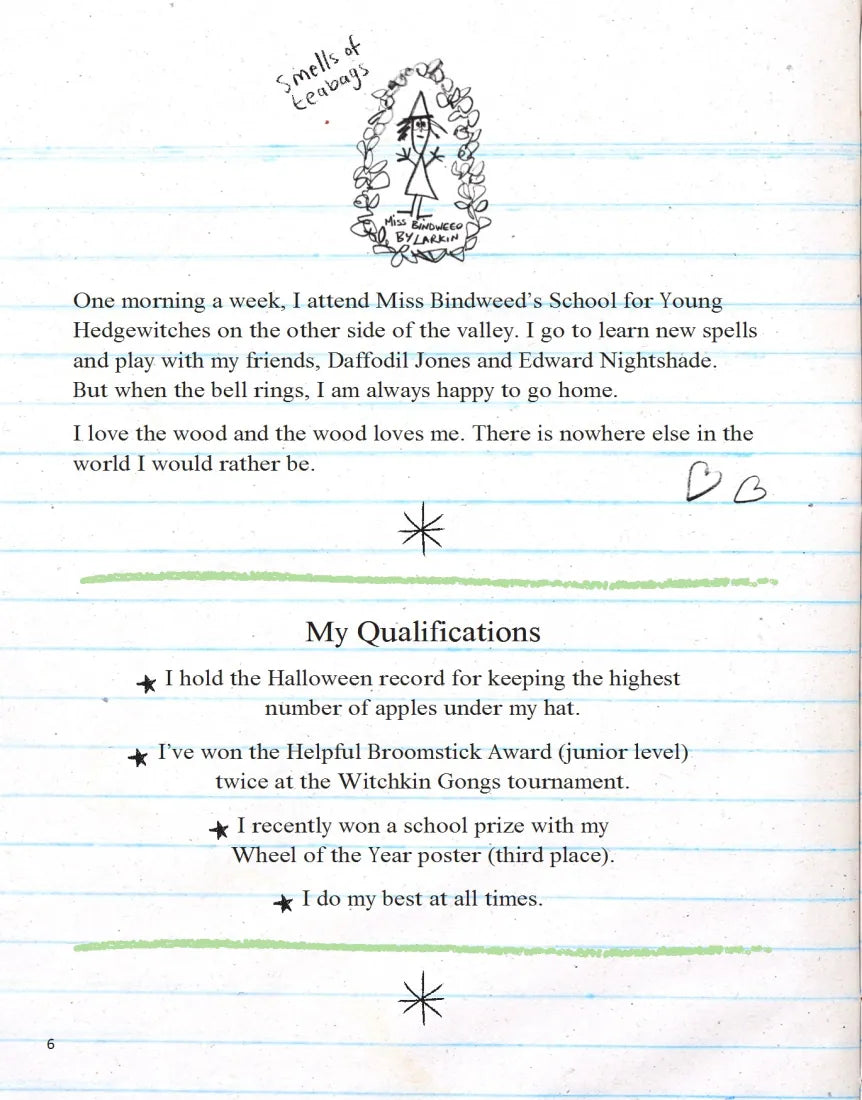 Smells of
teabags
MISS BINDWEED
BY LARKIN
One morning a week, I attend Miss Bindweed’s School for Young
Hedgewitches on the other side of the valley. I go to learn new spells
and play with my friends, Daffodil Jones and Edward Nightshade.
But when the bell rings, I am always happy to go home.
I love the wood and the wood loves me. There is nowhere else in the
world I would rather be.
My Qualifications
I hold the Halloween record for keeping the highest
number of apples under my hat.
I’ve won the Helpful Broomstick Award (junior level)
twice at the Witchkin Gongs tournament.
I recently won a school prize with my
Wheel of the Year poster (third place).
I do my best at all times.
6